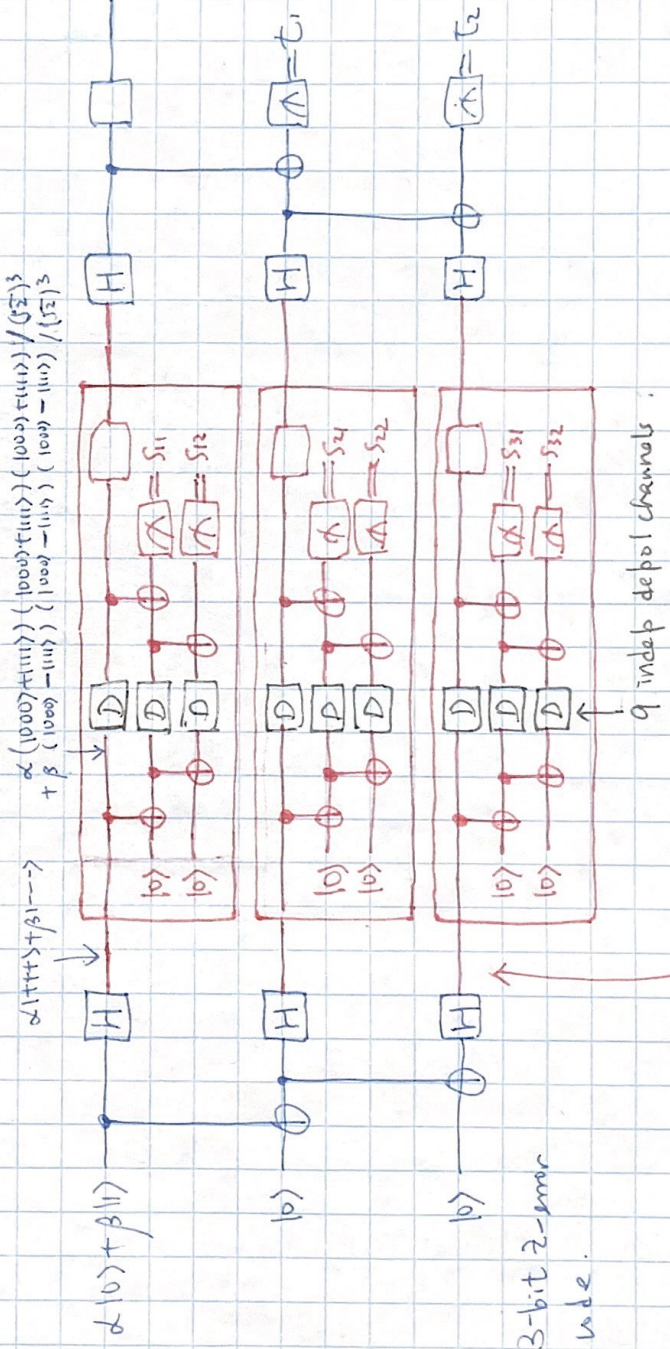 α|0⟩ + β|1⟩
|0⟩
|0⟩
3-bit Z-error
code.
H
H
H
α|+++⟩+β|---⟩
α(|000⟩+|111⟩)(|000⟩+|111⟩)(|000⟩+|111⟩)/(√2)³
+ β(|000⟩-|111⟩)(|000⟩-|111⟩)(|000⟩-|111⟩)/(√2)³
|0⟩
|0⟩
D
D
D
= S11
= S12
|0⟩
|0⟩
D
D
D
= S21
= S22
|0⟩
|0⟩
D
D
D
= S31
= S32
9 indep depol channels.
H
H
H
= t1
= t2